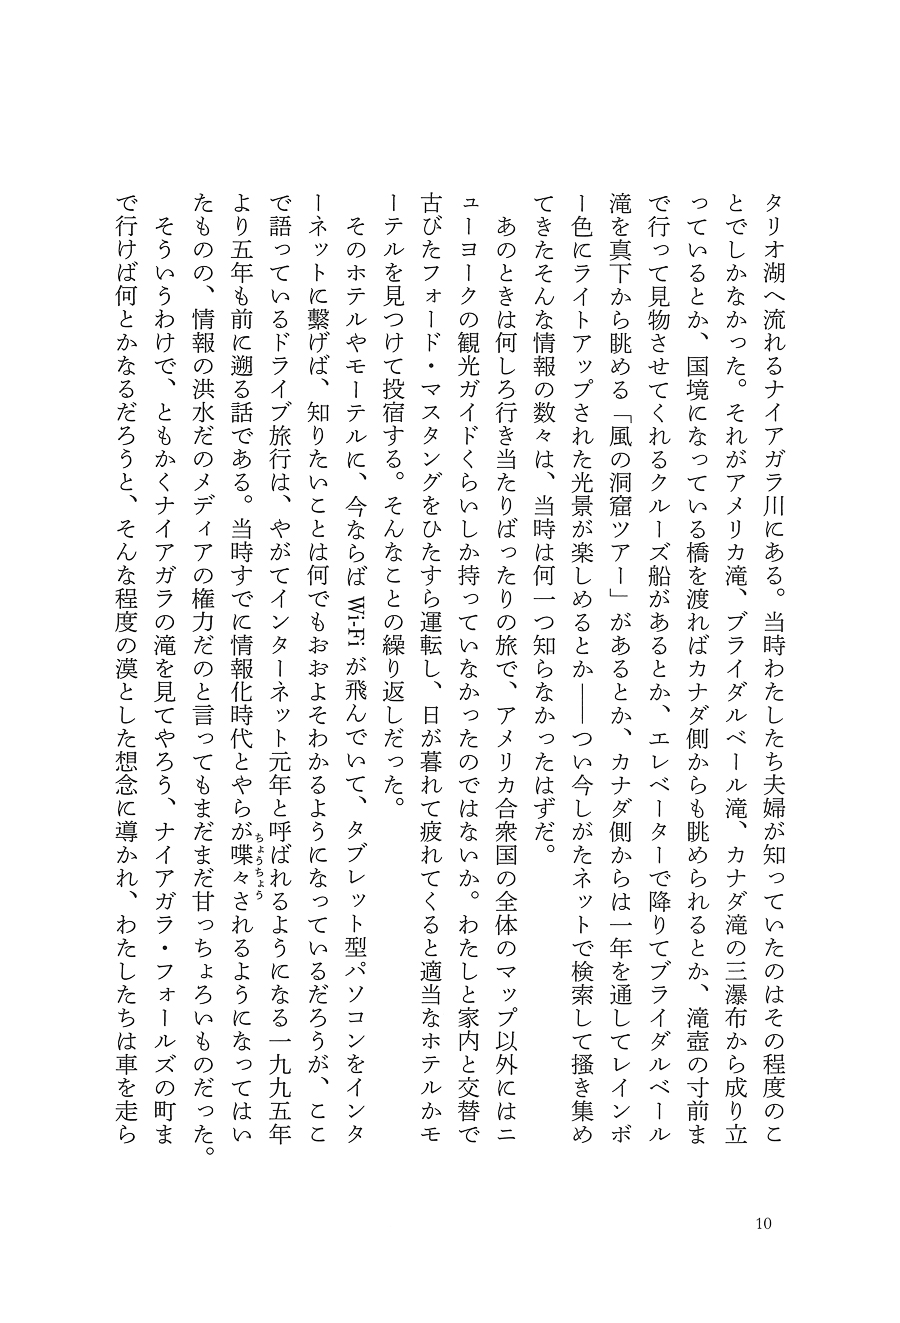 タリオ湖へ流れるナイアガラ川にある。当時わたしたち夫婦が知っていたのはその程度のこ
とでしかなかった。それがアメリカ滝、ブライダルベール滝、カナダ滝の三瀑布から成り立
っているとか、国境になっている橋を渡ればカナダ側からも眺められるとか、滝壺の寸前ま
で行って見物させてくれるクルーズ船があるとか、エレベーターで降りてブライダルベール
滝を真下から眺める「風の洞窟ツアー」があるとか、カナダ側からは一年を通してレインボ
ー色にライトアップされた光景が楽しめるとか――つい今しがたネットで検索して掻き集め
てきたそんな情報の数々は、当時は何一つ知らなかったはずだ。
あのときは何しろ行き当たりばったりの旅で、アメリカ合衆国の全体のマップ以外にはニ
ューヨークの観光ガイドくらいしか持っていなかったのではないか。わたしと家内と交替で
古びたフォード・マスタングをひたすら運転し、日が暮れて疲れてくると適当なホテルかモ
ーテルを見つけて投宿する。そんなことの繰り返しだった。
そのホテルやモーテルに、今ならば Wi-Fi が飛んでいて、タブレット型パソコンをインタ
ーネットに繫げば、知りたいことは何でもおおよそわかるようになっているだろうが、ここ
で語っているドライブ旅行は、やがてインターネット元年と呼ばれるようになる一九九五年
より五年も前に遡る話である。当時すでに情報化時代とやらが喋々ちょうちょうされるようになってはい
たものの、情報の洪水だのメディアの権力だのと言ってもまだまだ甘っちょろいものだった。
そういうわけで、ともかくナイアガラの滝を見てやろう、ナイアガラ・フォールズの町ま
で行けば何とかなるだろうと、そんな程度の漠とした想念に導かれ、わたしたちは車を走ら
10